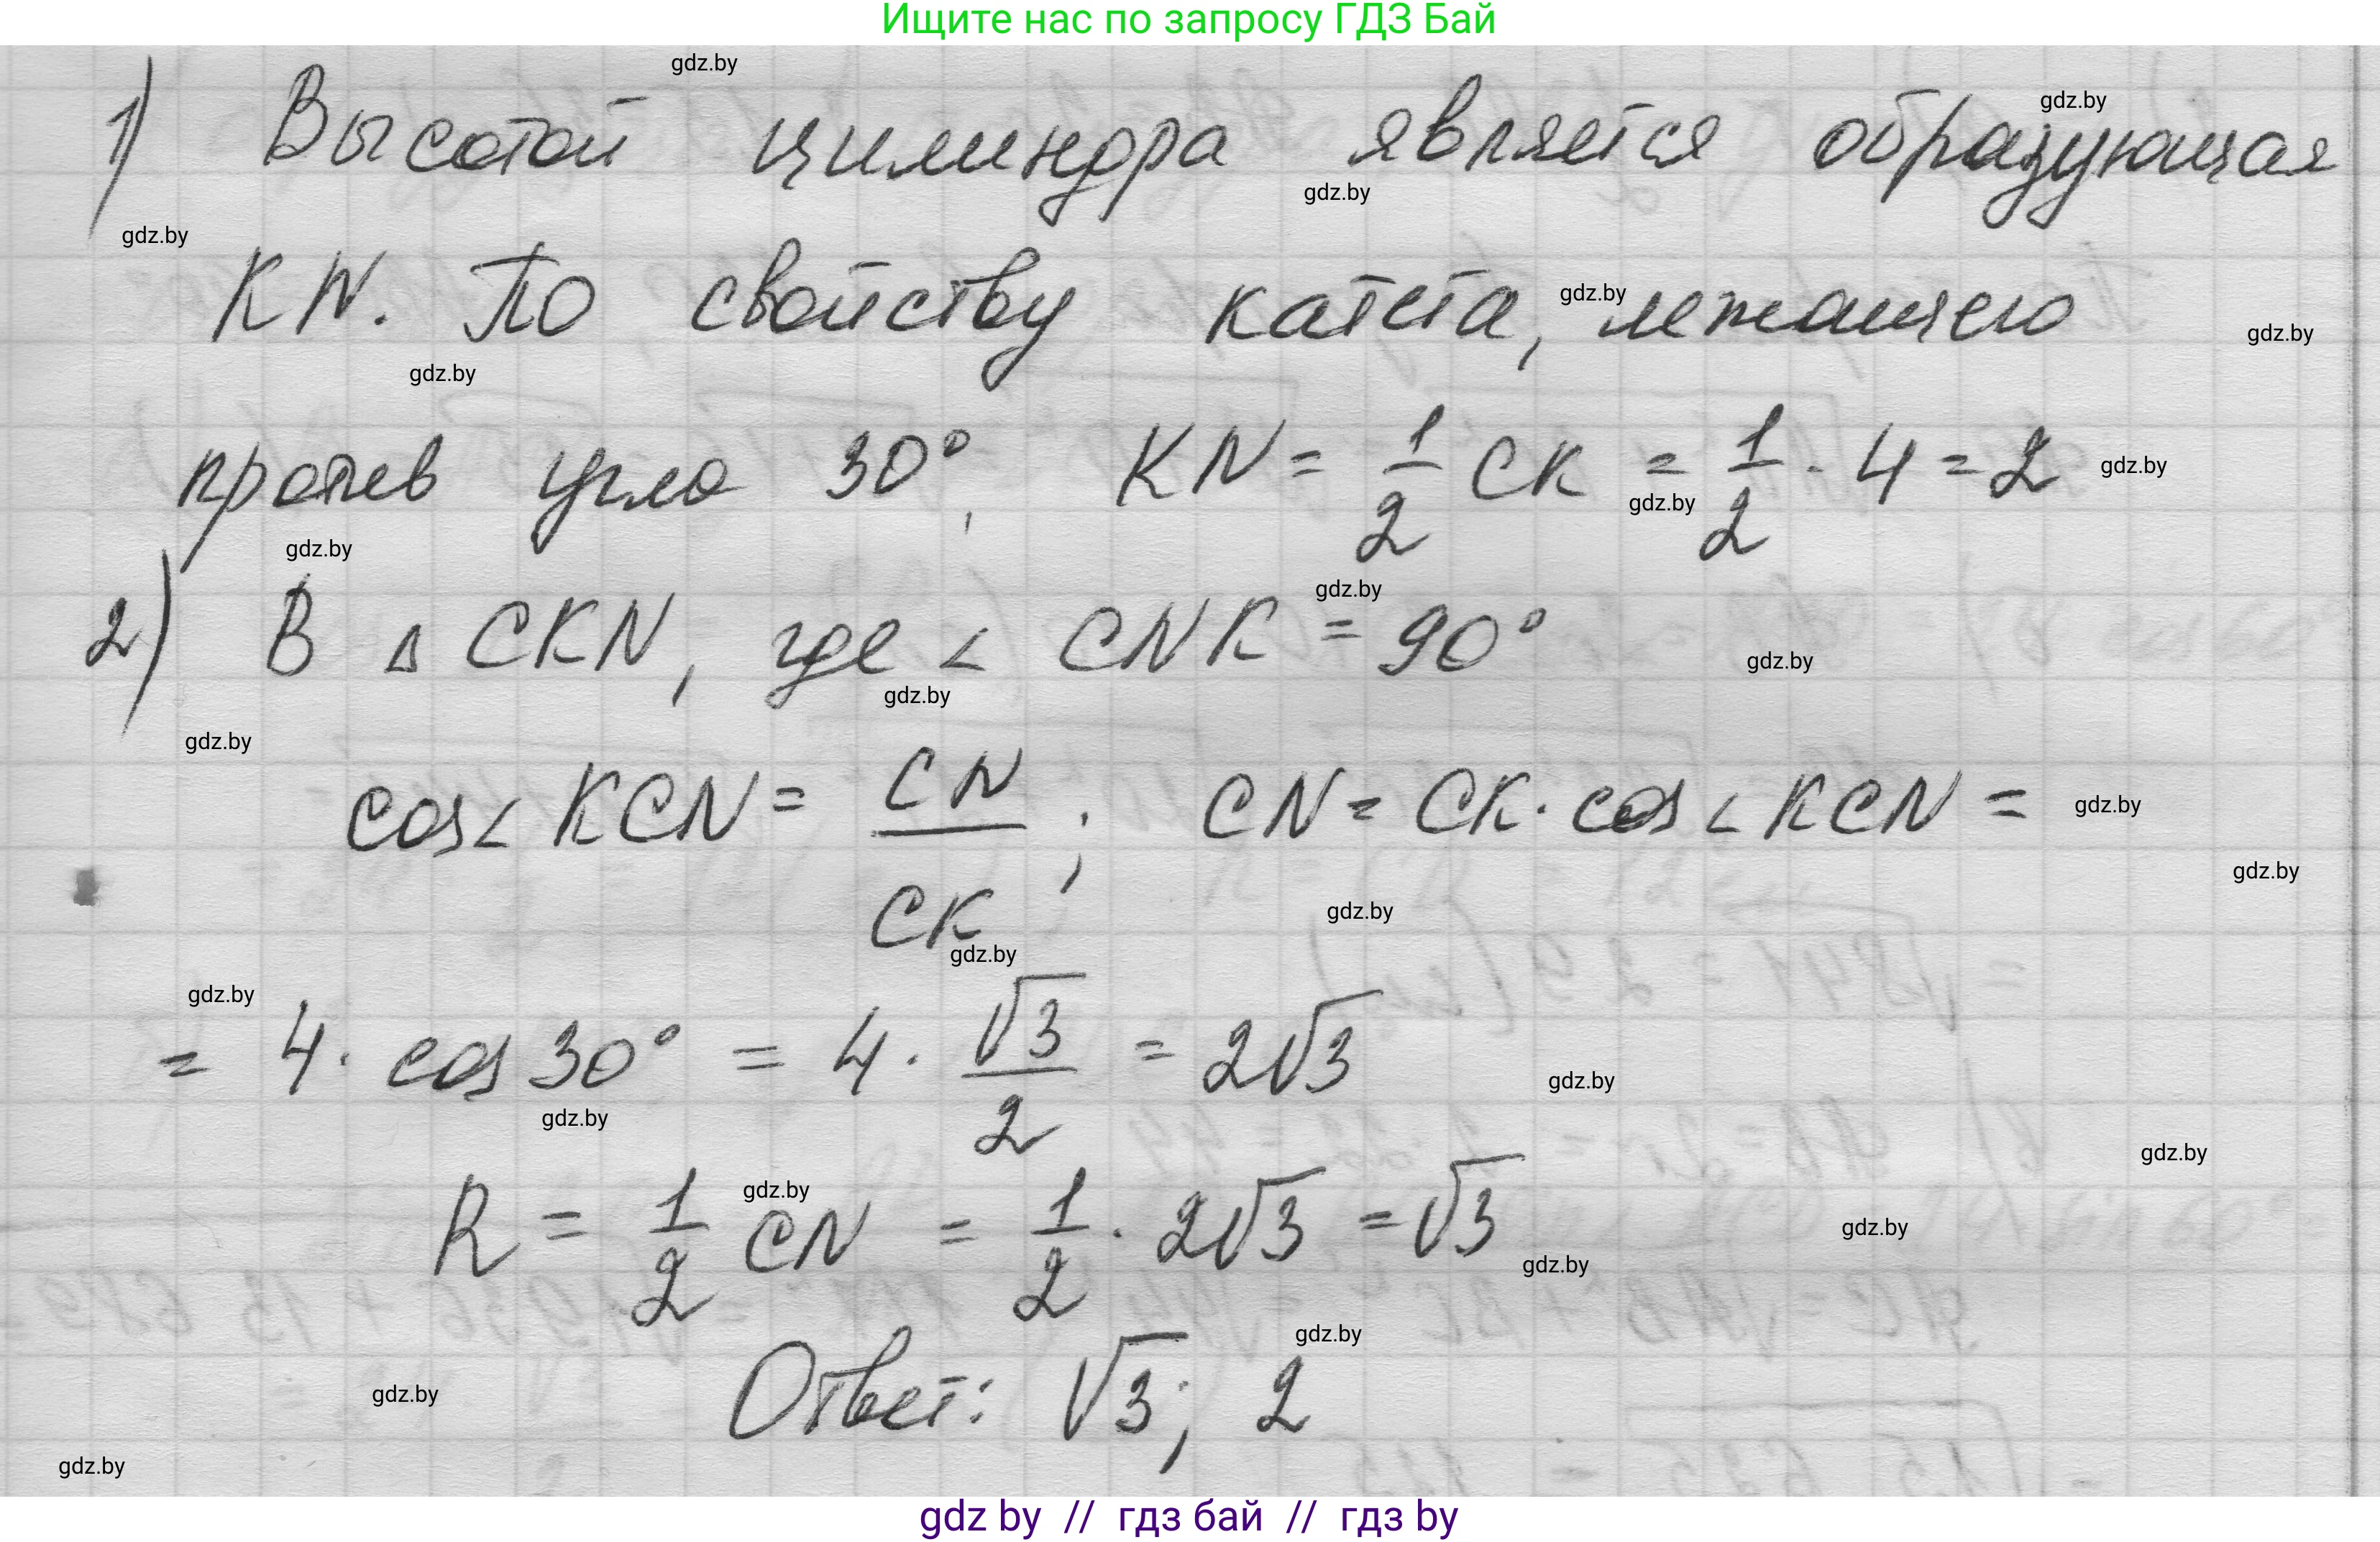 Ищите нас по запросу ГДЗ Бай
gdz.by
gdz.by
1) Высотой цилиндра является образующая
gdz.by
gdz.by
KN. По свойству катета, лежащего
gdz.by
gdz.by
gdz.by
против угла 30°, KN = 1/2 CK = 1/2 · 4 = 2
gdz.by
gdz.by
gdz.by
gdz.by
2) В △ CKN, где < CNK = 90°
gdz.by
gdz.by
gdz.by
cos < KCN = CN/CK; CN = CK · cos < KCN =
gdz.by
gdz.by
gdz.by
gdz.by
gdz.by
= 4 · cos 30° = 4 · √3/2 = 2√3
gdz.by
gdz.by
gdz.by
gdz.by
R = 1/2 CN = 1/2 · 2√3 = √3
gdz.by
gdz.by
gdz.by
Ответ: √3; 2
gdz.by
gdz.by
gdz by // гдз бай // гдз by